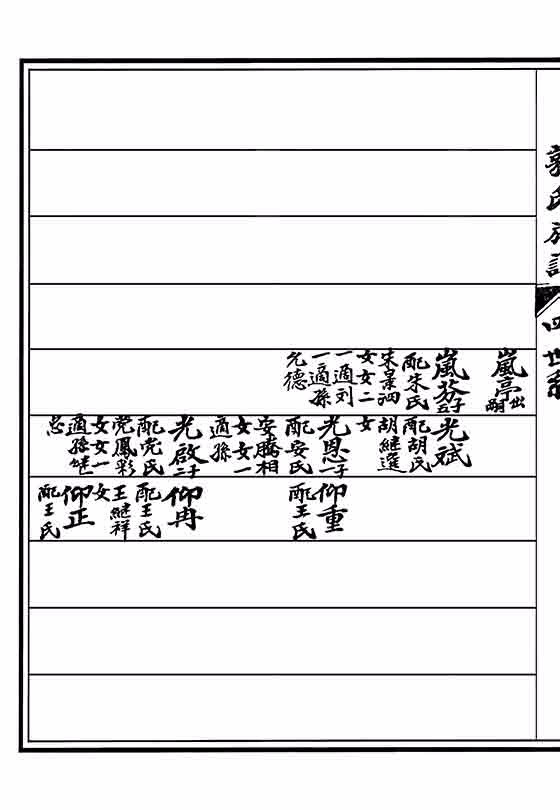 郭氏族譜
四世
嵐亭
出嗣
嵐芬
五子
配朱氏
朱景泗
女女二
一適刘
一適孫
允德
光斌
配胡氏
胡継選
女
光恩
一子
配安氏
安騰相
女女一
適孫
光啟
二子
配党氏
党鳳彩
女女一
適孫継
忠
仰重
配王氏
仰冉
配王氏
王継祥
女
仰正
配王氏